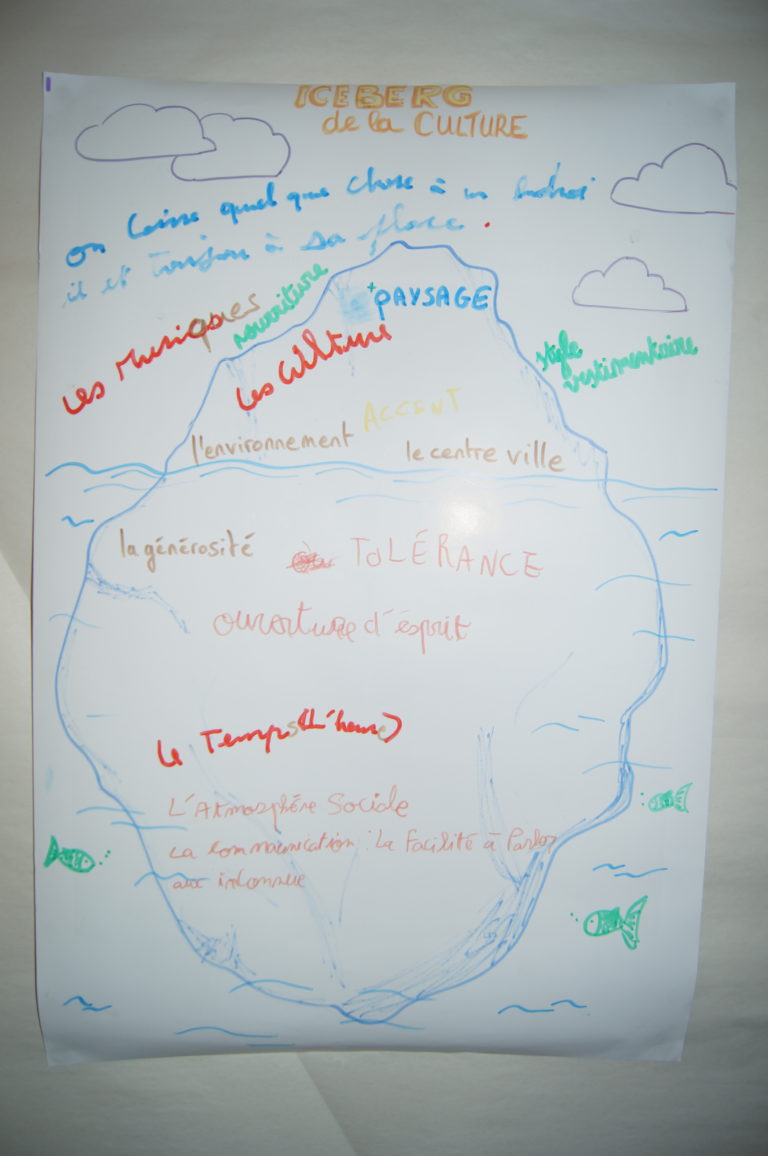 ICEBERG
de la CULTURE
on laisse quelque chose à un
il et toujour à sa place.
+ PAYSAGE
Les Musiques
nourriture
Les Culture
style
vestimentaire
ACCENT
l'environnement
le centre ville
la générosité
TOLÉRANCE
ouverture d'ésprit
Le Temps (L'heure)
L'Atmosphère Sociale
La communication : La Facilité à Parler
aux inconnue